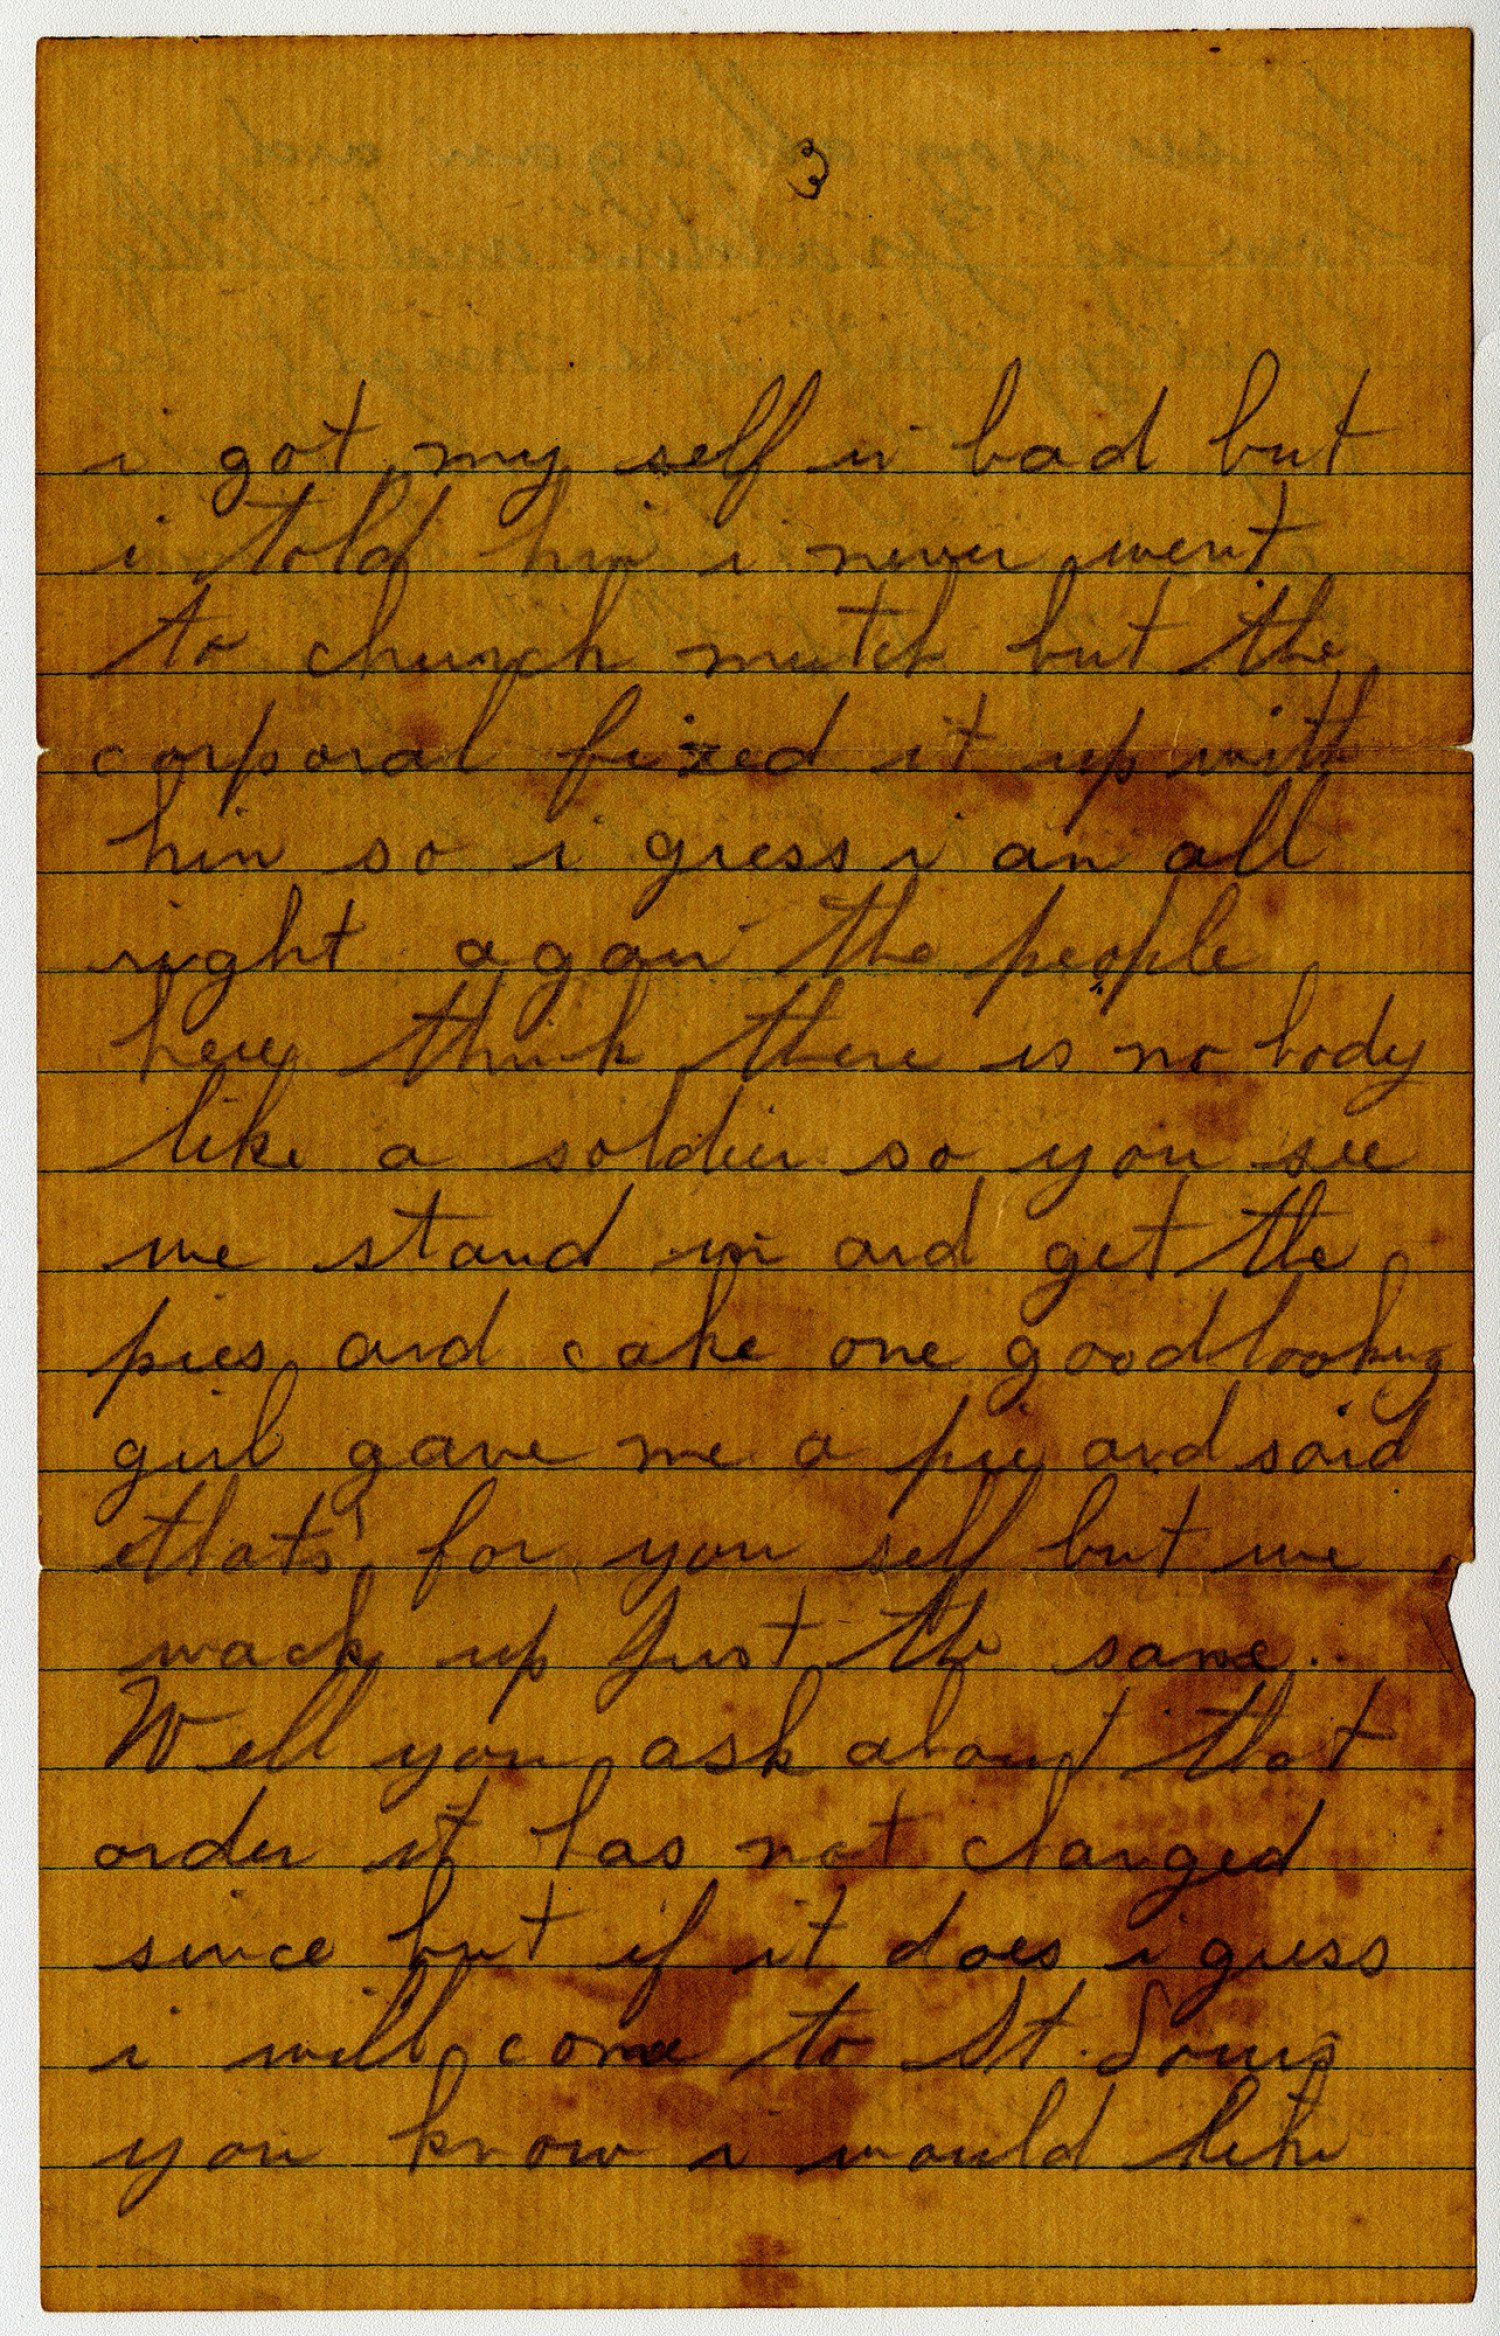 3
i got my self in bad but
i told hin i never went
to church mutch but the
corporal fixed it up with
hin so i gress i an all
right again the people
here think there is no body
like a soldier so you see
we stand in and get the
pies and cake one good looking
girl gave me a pie and said
thats for you self but we
wack up just the same.
Well you ask about that
order it has not changed
since but if it does i guess
i will come to St. Louis
you know i would like